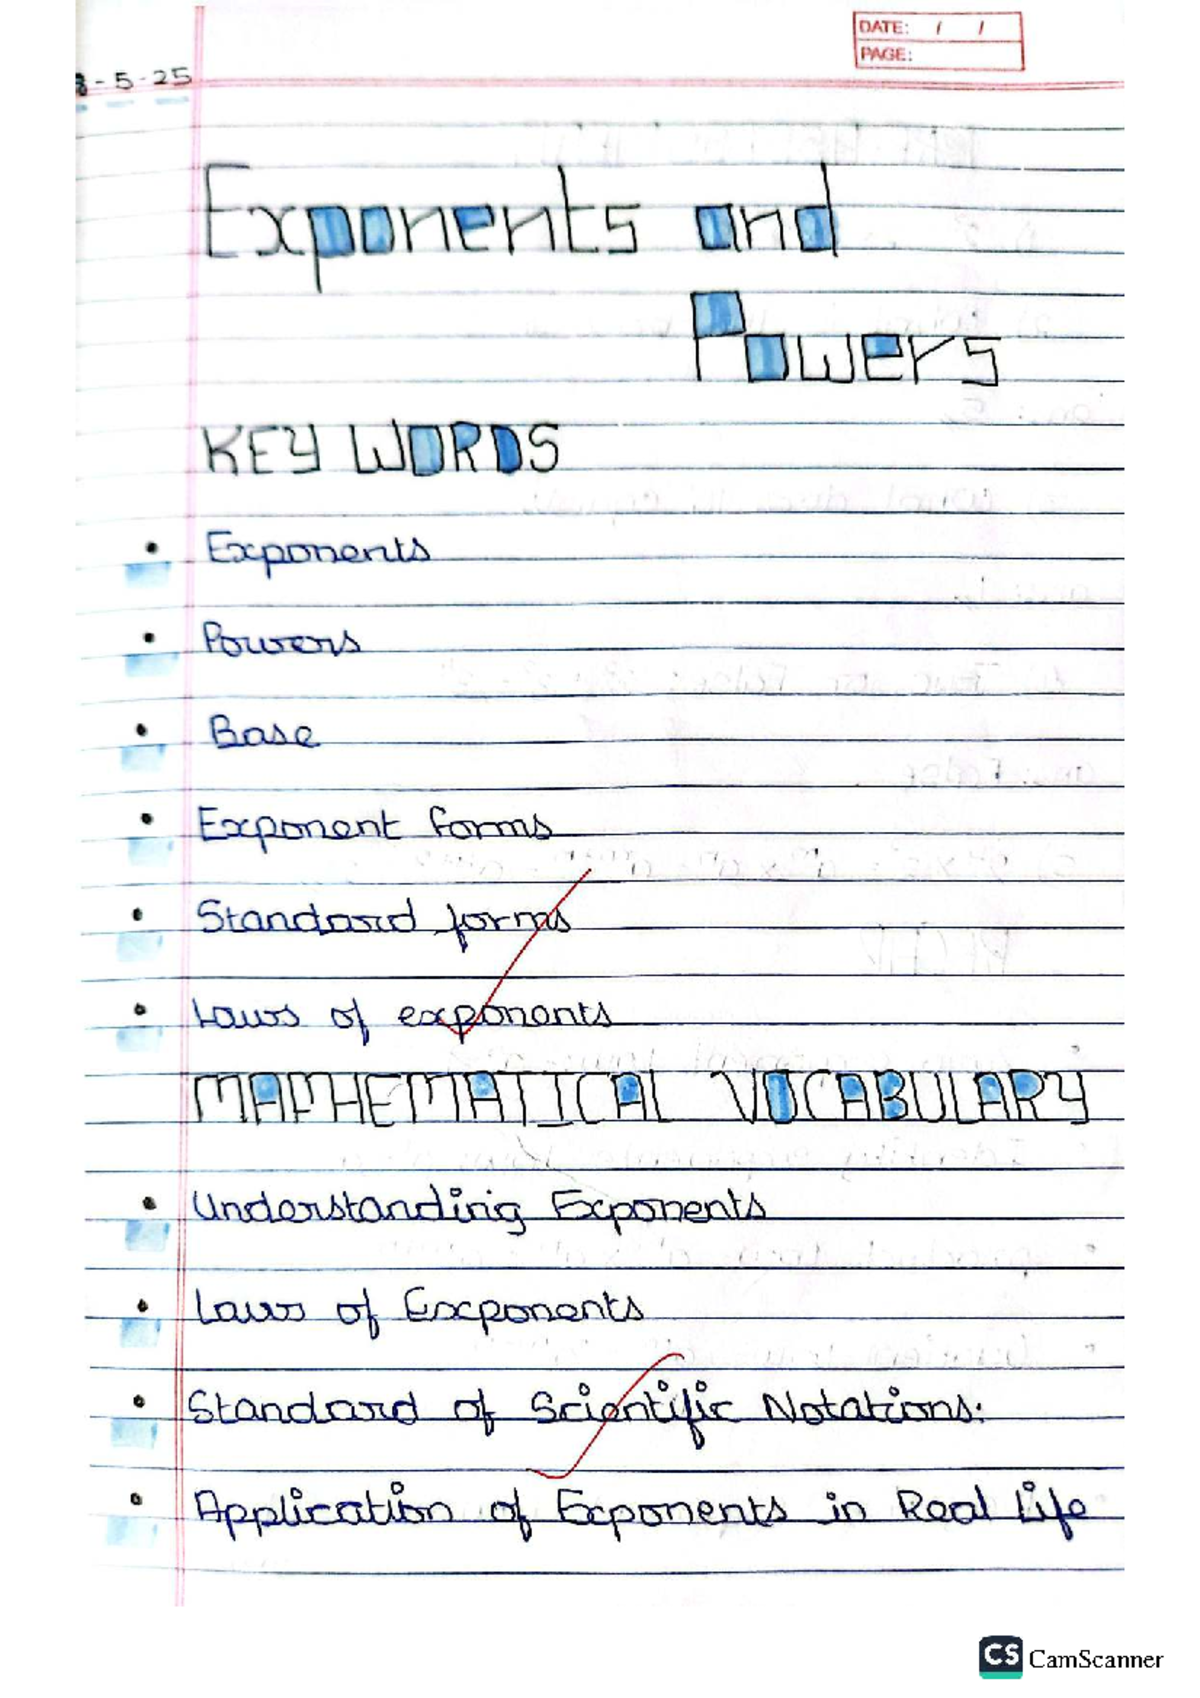 DATE: / /
PAGE:
-5-25
Exponents and
Powers
KEY WORDS
• Exponents
• Powers
• Base
• Exponent forms
• Standard forms
• Laws of exponents
MATHEMATICAL VOCABULARY
• Understanding Exponents
• Laws of Exponents
• Standard of Scientific Notations:
• Application of Exponents in Real Life
CS CamScanner